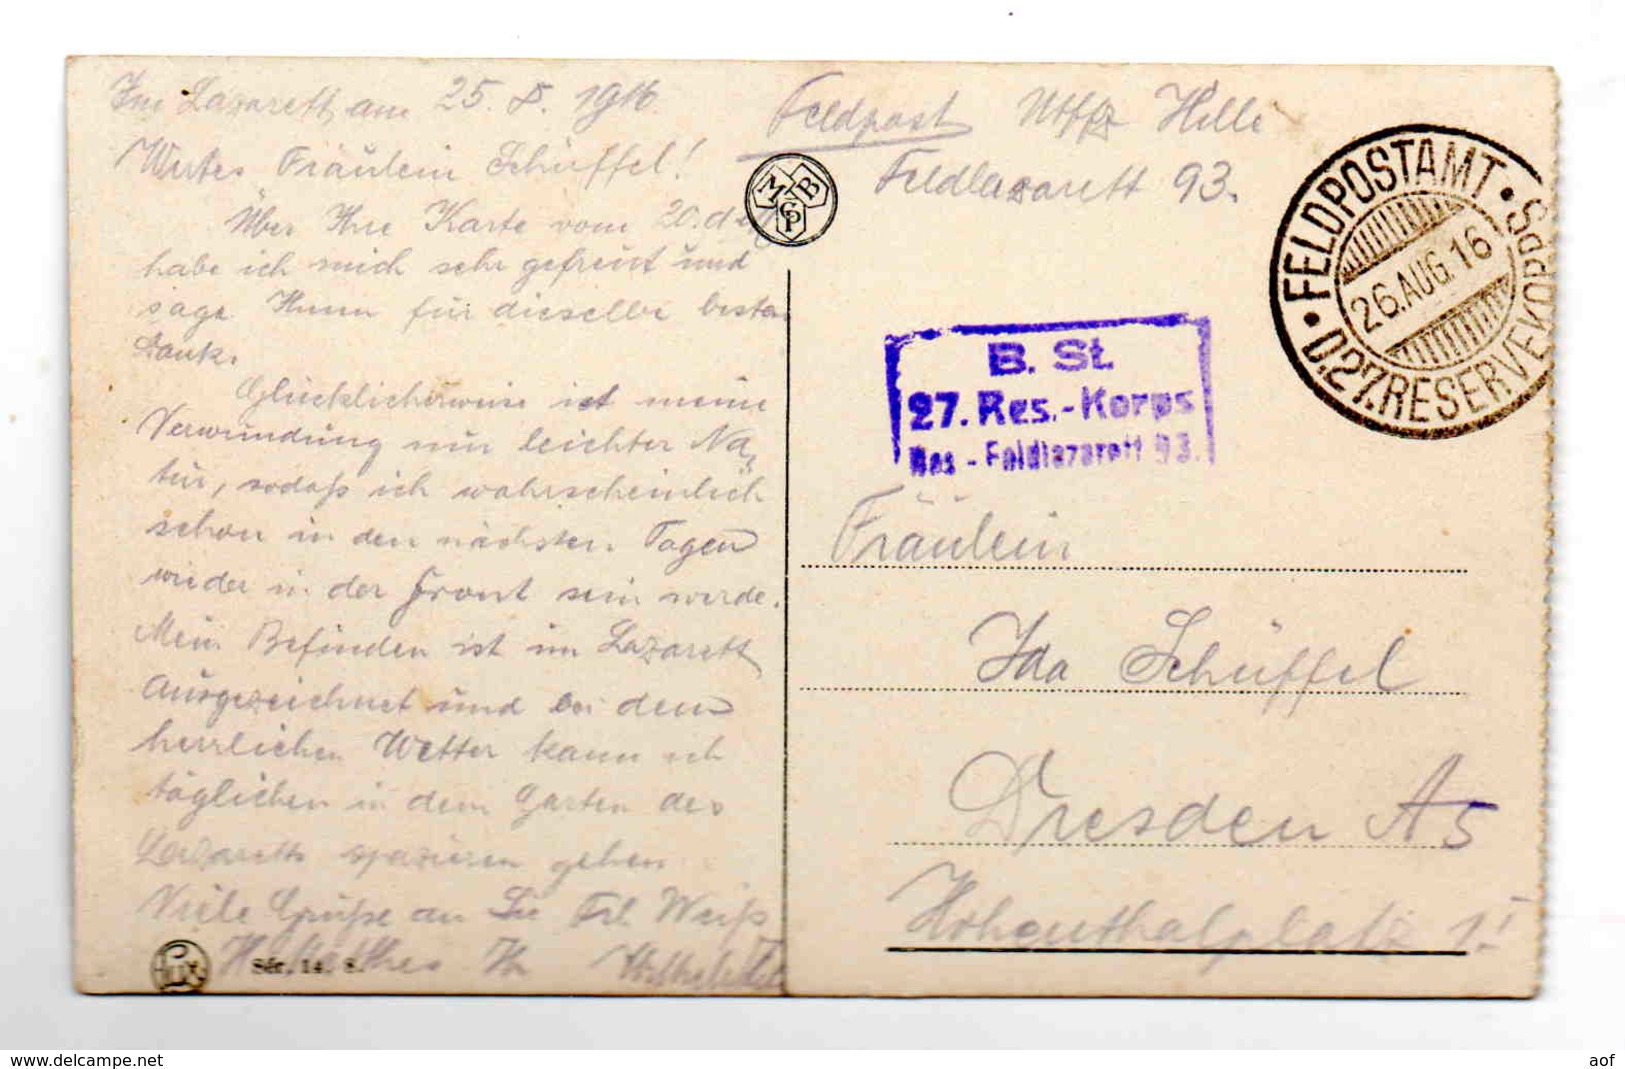 Im Lazarett, am 25. 8. 1916
Wertes Fräulein Schüffel!
Über Ihre Karte vom 20. d.
habe ich mich sehr gefreut und
sage Ihnen für dieselbe besten
Dank.
Glücklicherweise ist meine
Verwundung nur leichter Na-
tur, sodaß ich wahrscheinlich
schon in den nächsten Tagen
wieder in der Front sein werde.
Mein Befinden ist im Lazarett
ausgezeichnet und bei dem
herrlichen Wetter kann ich
täglichen in dem Garten des
Lazaretts spazieren gehen
Viele Grüße an Sie Frl. Weiß
Feldpost Uffz Hille
Feldlazarett 93.
M B C P
FELDPOSTAMT
D. 27. RESERVEKORPS
26. AUG. 16
B. St.
27. Res.-Korps
Res - Feldlazarett 93.
Fräulein
Ida Schüffel
Dresden A5
Hohenthalplatz 1.I
Lux
Sér. 14. 8.
www.delcampe.net
aof